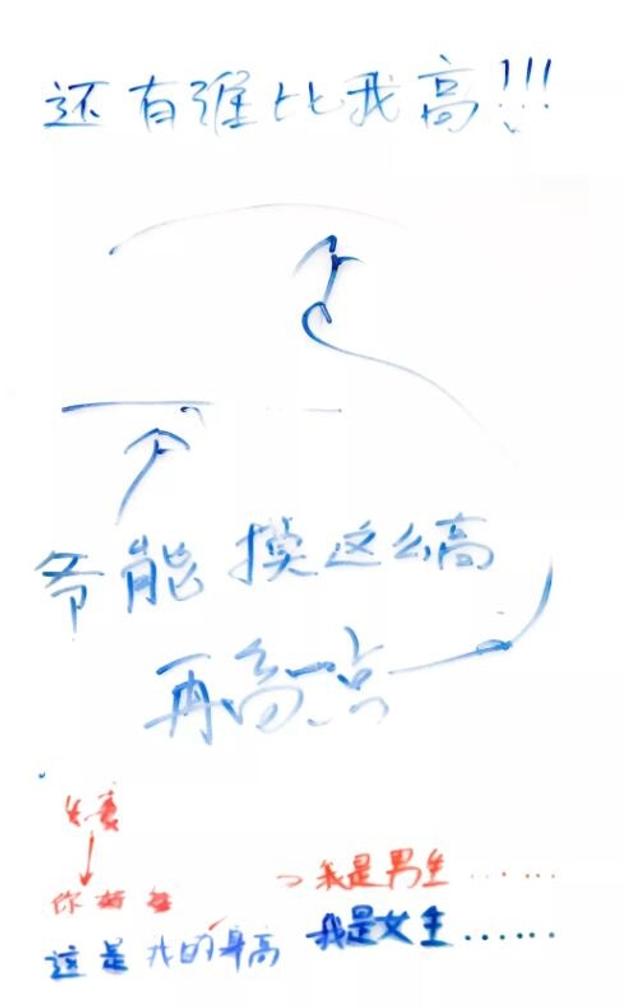 还有谁比我高!!!
爷能摸这么高
再高一点
我是男生......
这是我的身高
我是女生......